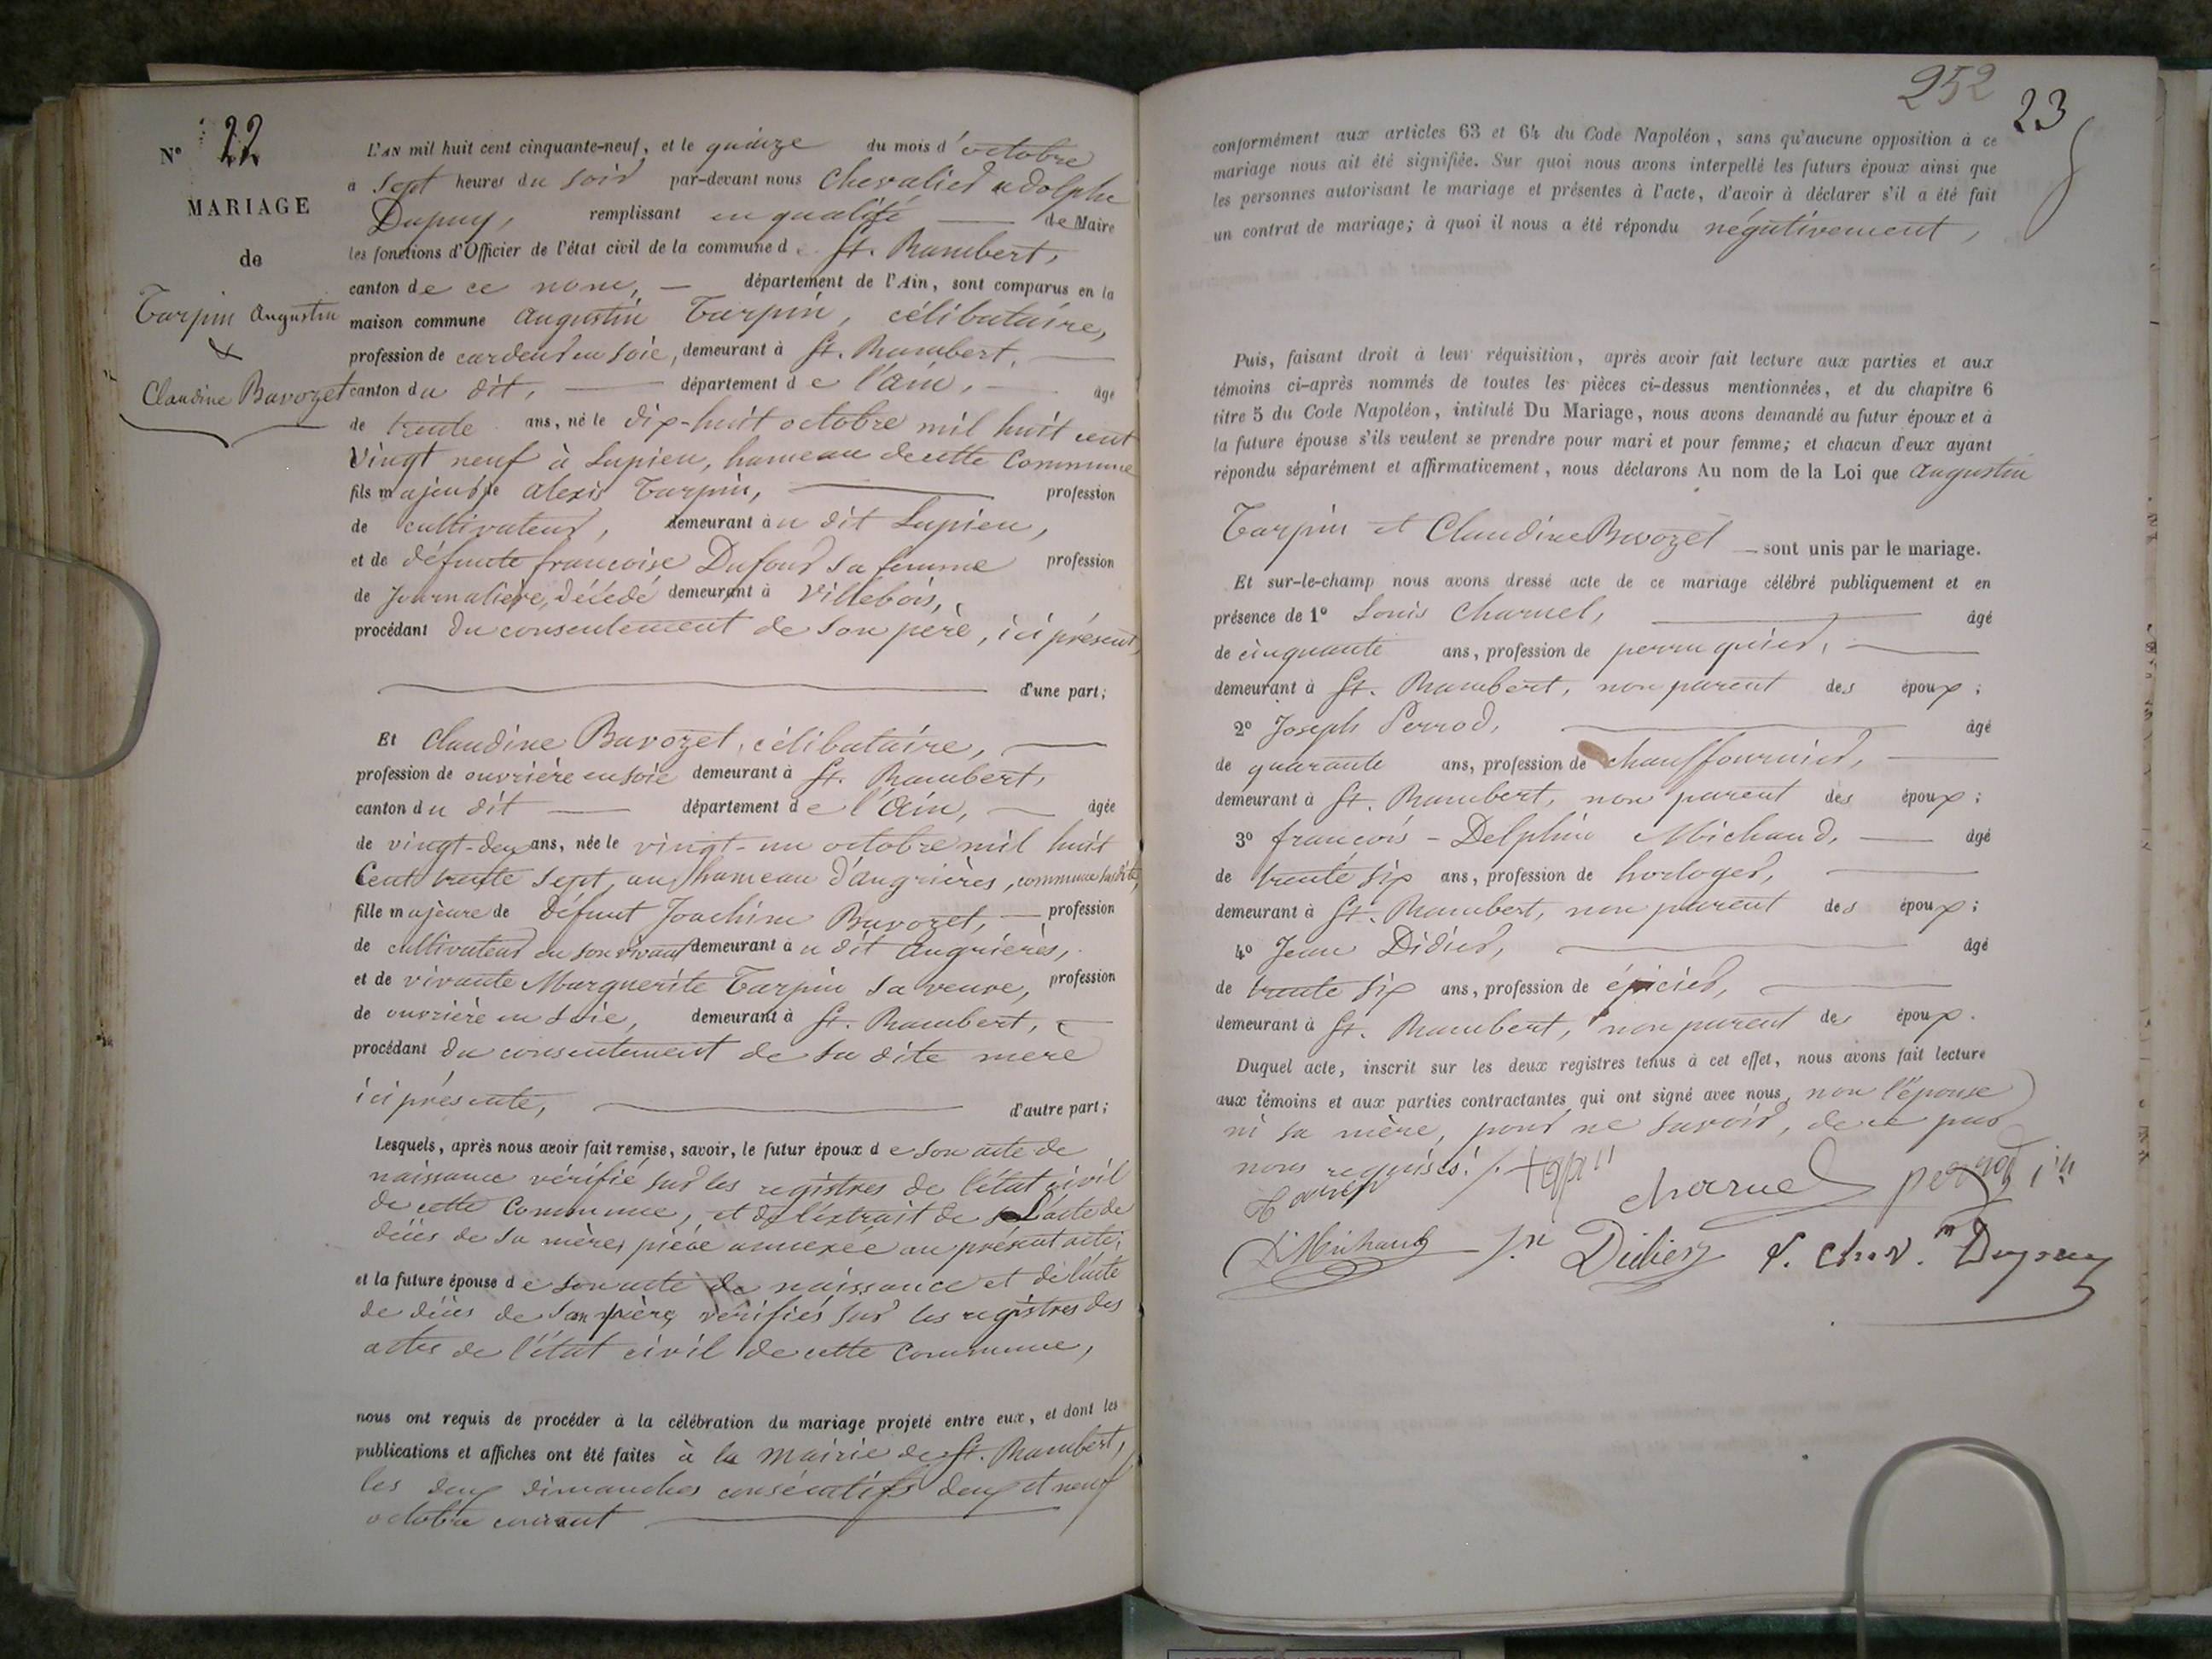 Nº 22
MARIAGE
de
Tarpin Augustin
&
Claudine Bavozet
L'AN mil huit cent cinquante-neuf, et le quinze du mois d'octobre
a sept heures du soir par-devant nous Chevalier adolphe
Dupuy, remplissant en qualité de Maire
les fonctions d'Officier de l'état civil de la commune d St. Rambert,
canton de ce nom, département de l'Ain, sont comparus en la
maison commune Augustin Tarpin, célibataire,
profession de cardeur en soie, demeurant à St. Rambert,
canton du dit, département de l'ain, âgé
de trente ans, né le dix-huit octobre mil huit cent
vingt neuf à Lupieu, hameau de cette Commune
fils majeur de alexis Tarpin, profession
de cultivateur, demeurant au dit Lupieu,
et de défunte françoise Dufour sa femme profession
de Journalière, décédé demeurant à Villebois,
procédant du consentement de son père, ici présent,
d'une part;
Et Claudine Bavozet, célibataire,
profession de ouvrière en soie demeurant à St. Rambert,
canton du dit département de l'ain, âgée
de vingt-deux ans, née le vingt-un octobre mil huit
Cent trente sept, au hameau d'angrières, commune susdite,
fille majeure de défunt Joachim Bavozet, profession
de cultivateur en son vivant demeurant au dit Angrières,
et de vivante Marguerite Tarpin sa veuve, profession
de ouvrière en soie, demeurant à St. Rambert,
procédant du consentement de sa dite mère
ici présente, d'autre part;
Lesquels, après nous avoir fait remise, savoir, le futur époux de son acte de
naissance vérifié sur les registres de l'état civil
de cette Commune, et de l'extrait de l'acte de
décès de sa mère, pièce annexée au présent acte;
et la future épouse de son acte de naissance et de l'acte
de décès de son père, vérifiés sur les registres des
actes de l'état civil de cette Commune,
nous ont requis de procéder à la célébration du mariage projeté entre eux, et dont les
publications et affiches ont été faites à la Mairie de St. Rambert,
les deux dimanches consécutifs deux et neuf
octobre courant
252
23
conformément aux articles 63 et 64 du Code Napoléon, sans qu'aucune opposition à ce
mariage nous ait été signifiée. Sur quoi nous avons interpellé les futurs époux ainsi que
les personnes autorisant le mariage et présentes à l'acte, d'avoir à déclarer s'il a été fait
un contrat de mariage; à quoi il nous a été répondu négativement,
Puis, faisant droit à leur réquisition, après avoir fait lecture aux parties et aux
témoins ci-après nommés de toutes les pièces ci-dessus mentionnées, et du chapitre 6
titre 5 du Code Napoléon, intitulé Du Mariage, nous avons demandé au futur époux et à
la future épouse s'ils veulent se prendre pour mari et pour femme; et chacun d'eux ayant
répondu séparément et affirmativement, nous déclarons Au nom de la Loi que Augustin
Tarpin et Claudine Bavozet sont unis par le mariage.
Et sur-le-champ nous avons dressé acte de ce mariage célébré publiquement et en
présence de 1º Louis Charvel, âgé
de cinquante ans, profession de perruquier,
demeurant à St. Rambert, non parent des époux;
2º Joseph Perrod, âgé
de quarante ans, profession de chauffournier,
demeurant à St. Rambert, non parent des époux;
3º françois-Delphin Michaud, âgé
de trente six ans, profession de horloger,
demeurant à St. Rambert, non parent des époux;
4º Jean Didier, âgé
de trente six ans, profession de épicier,
demeurant à St. Rambert, non parent des époux.
Duquel acte, inscrit sur les deux registres tenus à cet effet, nous avons fait lecture
aux témoins et aux parties contractantes qui ont signé avec nous, non l'épouse
ni sa mère, pour ne savoir, de ce par
nous requises.
charvel perrod
D Michaud Jn Didier A. Chev. Dupuy